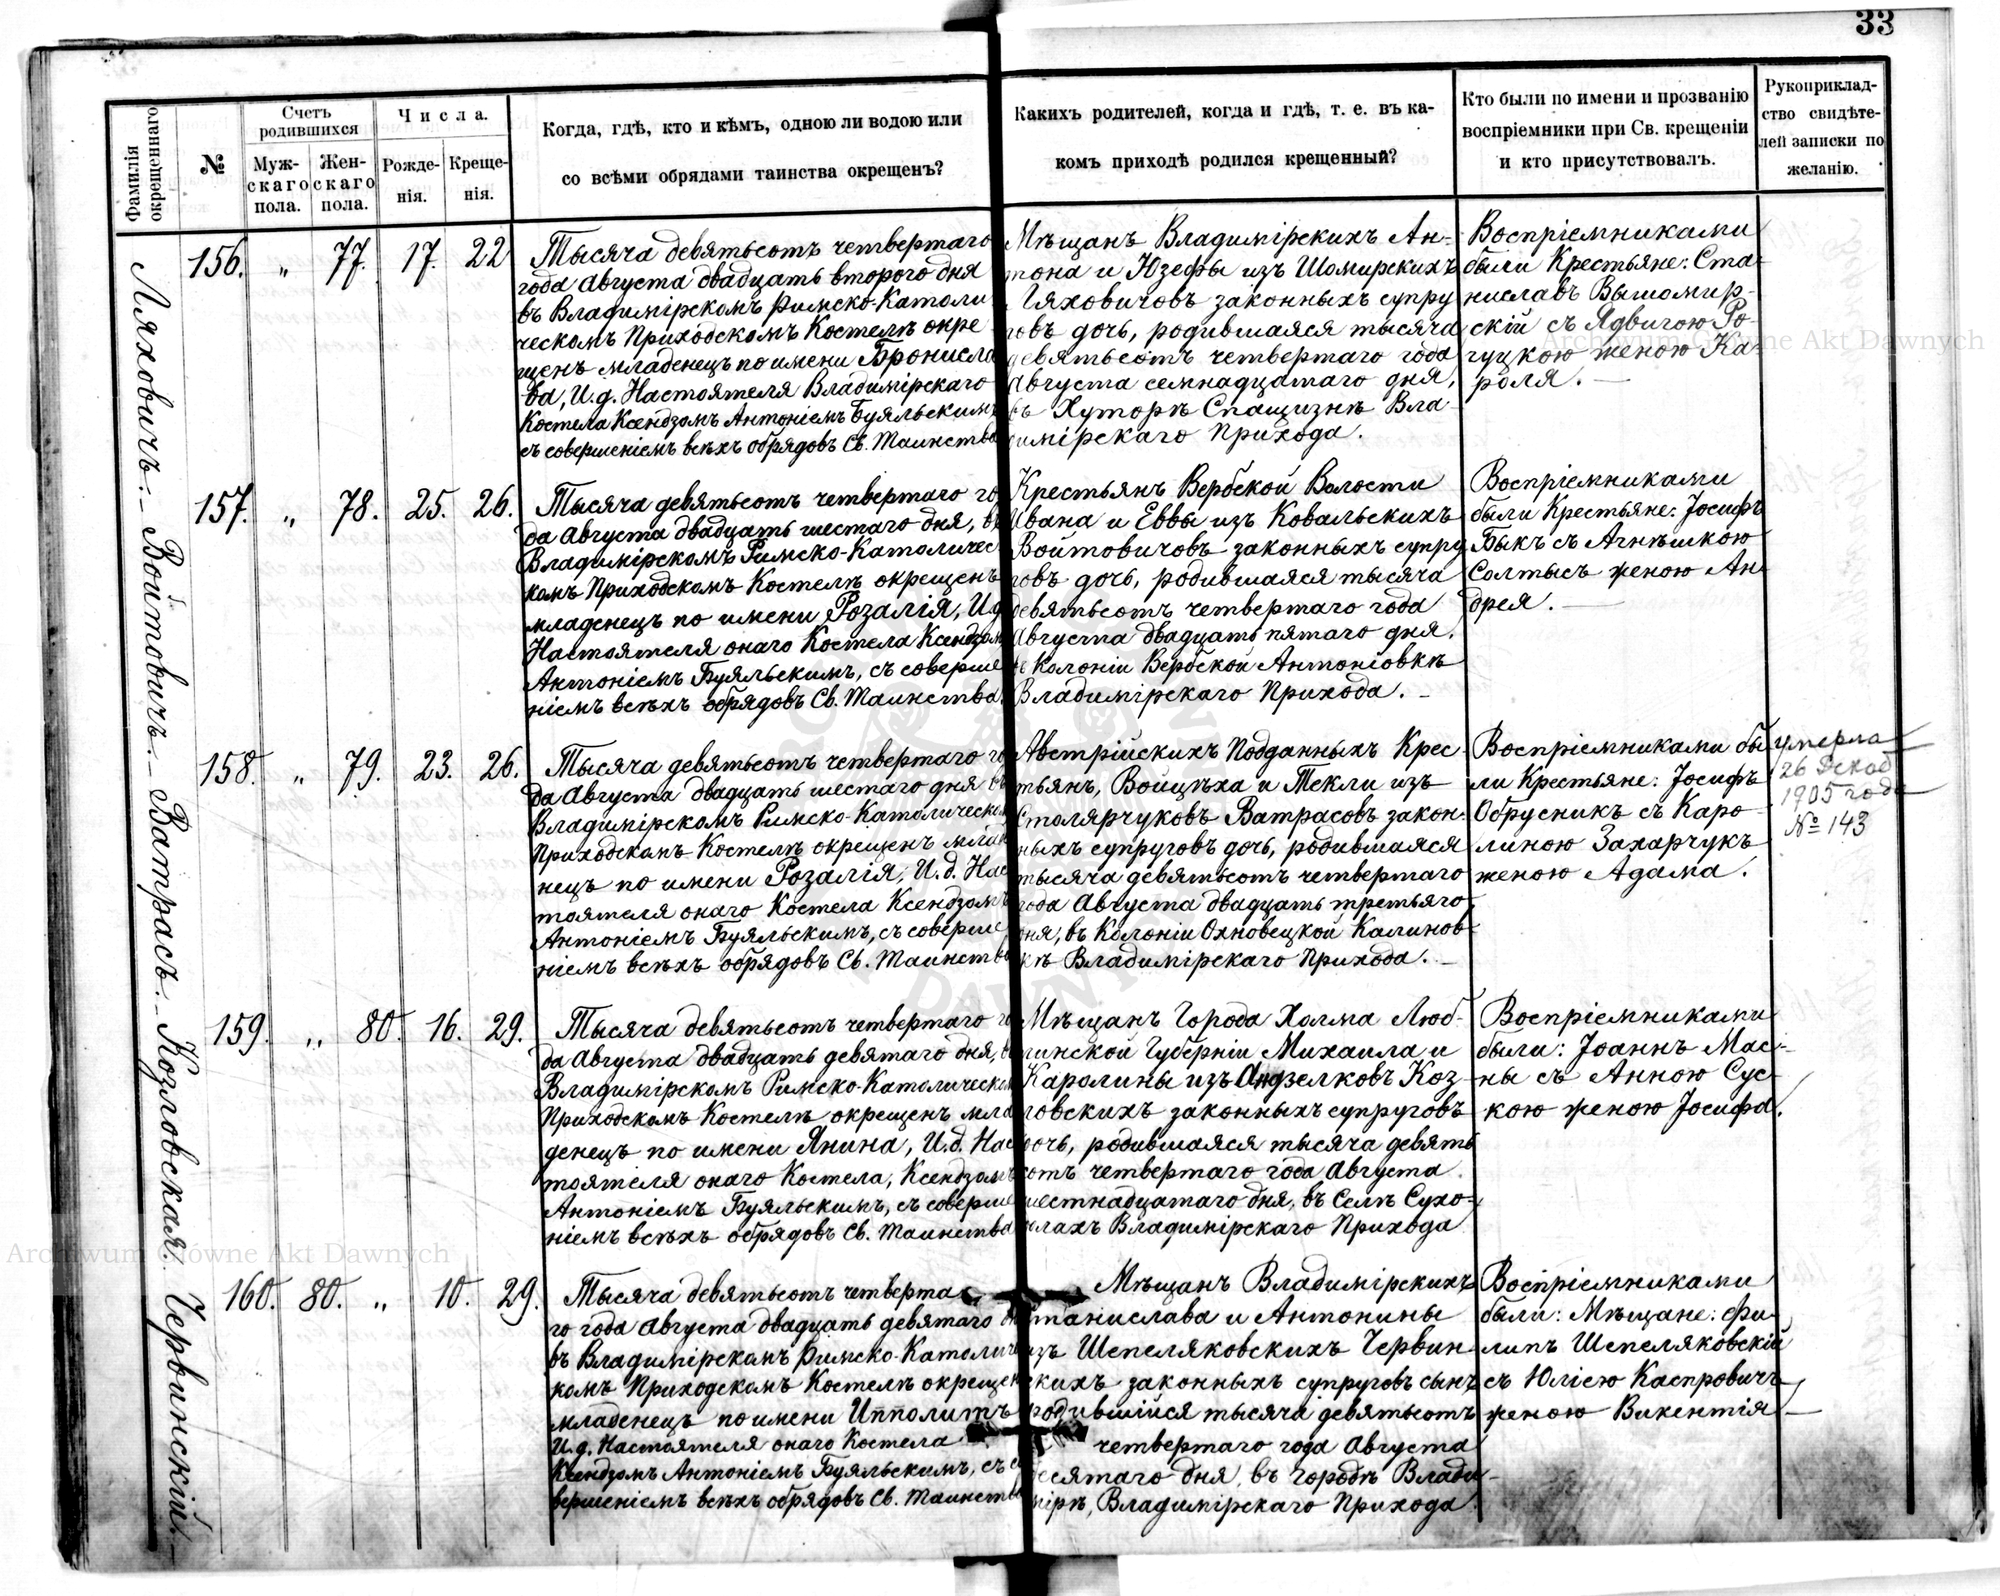 33
Фамилія
окрещеннаго
№
Счетъ
родившихся
Муж-
скаго
пола.
Жен-
скаго
пола.
Числа.
Рожде-
нія.
Креще-
нія.
Когда, гдѣ, кто и кѣмъ, одною ли водою или
со всѣми обрядами таинства окрещенъ?
Какихъ родителей, когда и гдѣ, т. е. въ ка-
комъ приходѣ родился крещенный?
Кто были по имени и прозванію
воспріемники при Св. крещеніи
и кто присутствовалъ.
Рукоприклад-
ство свидѣте-
лей записки по
желанію.
Ляховичъ.– Войтовичъ.– Ватрасъ.– Козловская. Червинскій.–
156. „ 77. 17. 22
Тысяча девятьсотъ четвертаго
года Августа двадцать второго дня
въ Владимірскомъ Римско-Католи
ческомъ Приходскомъ Костелѣ окре
щенъ младенецъ по имени Бронисла
ва, И.д. Настоятеля Владимірскаго
Костела Ксендзомъ Антоніемъ Буяльскимъ
съ совершеніемъ всѣхъ обрядовъ Св. Таинства
Мѣщанъ Владимірскихъ Ан-
тона и Юзефы изъ Шомирскихъ
Ляховичовъ законныхъ супру
говъ дочь, родившаяся тысяча
девятьсотъ четвертаго года
Августа семнадцатаго дня,
въ Хуторѣ Спащизнѣ Вла-
димірскаго Прихода.
Воспріемниками
были Крестьяне: Ста-
ниславъ Вышомир-
скій съ Ядвигою Ро-
гуцкою женою Ка-
роля. –
157. „ 78. 25. 26.
Тысяча девятьсотъ четвертаго го
да Августа двадцать шестаго дня, въ
Владимірскомъ Римско-Католичес
комъ Приходскомъ Костелѣ окрещенъ
младенецъ по имени Розалія, И.д.
Настоятеля онаго Костела Ксендзом
Антоніемъ Буяльскимъ, съ соверше
ніемъ всѣхъ обрядовъ Св. Таинства.
Крестьянъ Вербской Волости
Ивана и Еввы изъ Ковальскихъ
Войтовичовъ законныхъ супру
говъ дочь, родившаяся тысяча
девятьсотъ четвертаго года
Августа двадцать пятаго дня,
въ Колоніи Вербской Антоніовкѣ
Владимірскаго Прихода. –
Воспріемниками
были Крестьяне: Іосифъ
Быкъ съ Агнѣшкою
Солтысъ женою Ан
дрея. –
158. „ 79. 23. 26.
Тысяча девятьсотъ четвертаго го
да Августа двадцать шестаго дня въ
Владимірскомъ Римско-Католическом
Приходскомъ Костелѣ окрещенъ млад
нецъ по имени Розалія, И.д. Нас
тоятеля онаго Костела Ксендзомъ
Антоніемъ Буяльскимъ, съ соверше
ніемъ всѣхъ обрядовъ Св. Таинства
Австрійскихъ Подданныхъ Крес-
тьянъ, Войцѣха и Текли изъ
Столярчуковъ Ватрасовъ закон-
ныхъ супруговъ дочь, родившаяся
тысяча девятьсотъ четвертаго
года Августа двадцать третьяго
дня, въ Колоніи Охновецкой Калинов-
кѣ Владимірскаго Прихода. –
Воспріемниками бы
ли Крестьяне: Іосифъ
Обрусникъ съ Каро-
линою Захарчукъ
женою Адама.
умерла
26 Декаб
1905 года
№ 143
159. „ 80. 16. 29.
Тысяча девятьсотъ четвертаго го
да Августа двадцать девятаго дня, въ
Владимірскомъ Римско-Католическом
Приходскомъ Костелѣ окрещенъ мла
денецъ по имени Янина, И.д. Нас
тоятеля онаго Костела, Ксендзомъ
Антоніемъ Буяльскимъ, съ соверше
ніемъ всѣхъ обрядовъ Св. Таинства
Мѣщанъ Города Холма Люб-
линской Губерніи Михаила и
Каролины изъ Андзелковъ Коз-
ловскихъ законныхъ супруговъ
дочь, родившаяся тысяча девять
сотъ четвертаго года Августа
шестнадцатаго дня, въ Селѣ Сухо-
долахъ Владимірскаго Прихода
Воспріемниками
были: Іоаннъ Мас-
ны съ Анною Сус-
кою женою Іосифа.
160. 80. „ 10. 29.
Тысяча девятьсотъ четверта
го года Августа двадцать девятаго дн
въ Владимірскомъ Римско-Католиче
комъ Приходскомъ Костелѣ окрещен
младенецъ по имени Ипполитъ
И.д. Настоятеля онаго Костела
Ксендзомъ Антоніемъ Буяльскимъ, съ со
вершеніемъ всѣхъ обрядовъ Св. Таинства
Мѣщанъ Владимірскихъ
Станислава и Антонины
изъ Шепеляковскихъ Червин-
скихъ законныхъ супруговъ сынъ
родившійся тысяча девятьсотъ
четвертаго года Августа
десятаго дня, въ городѣ Влади-
мірѣ, Владимірскаго Прихода
Воспріемниками
были: Мѣщане: Фи-
липъ Шепеляковскій
съ Юліею Каспровичъ
женою Викентія –
Archiwum Główne Akt Dawnych
Archiwum Główne Akt Dawnych